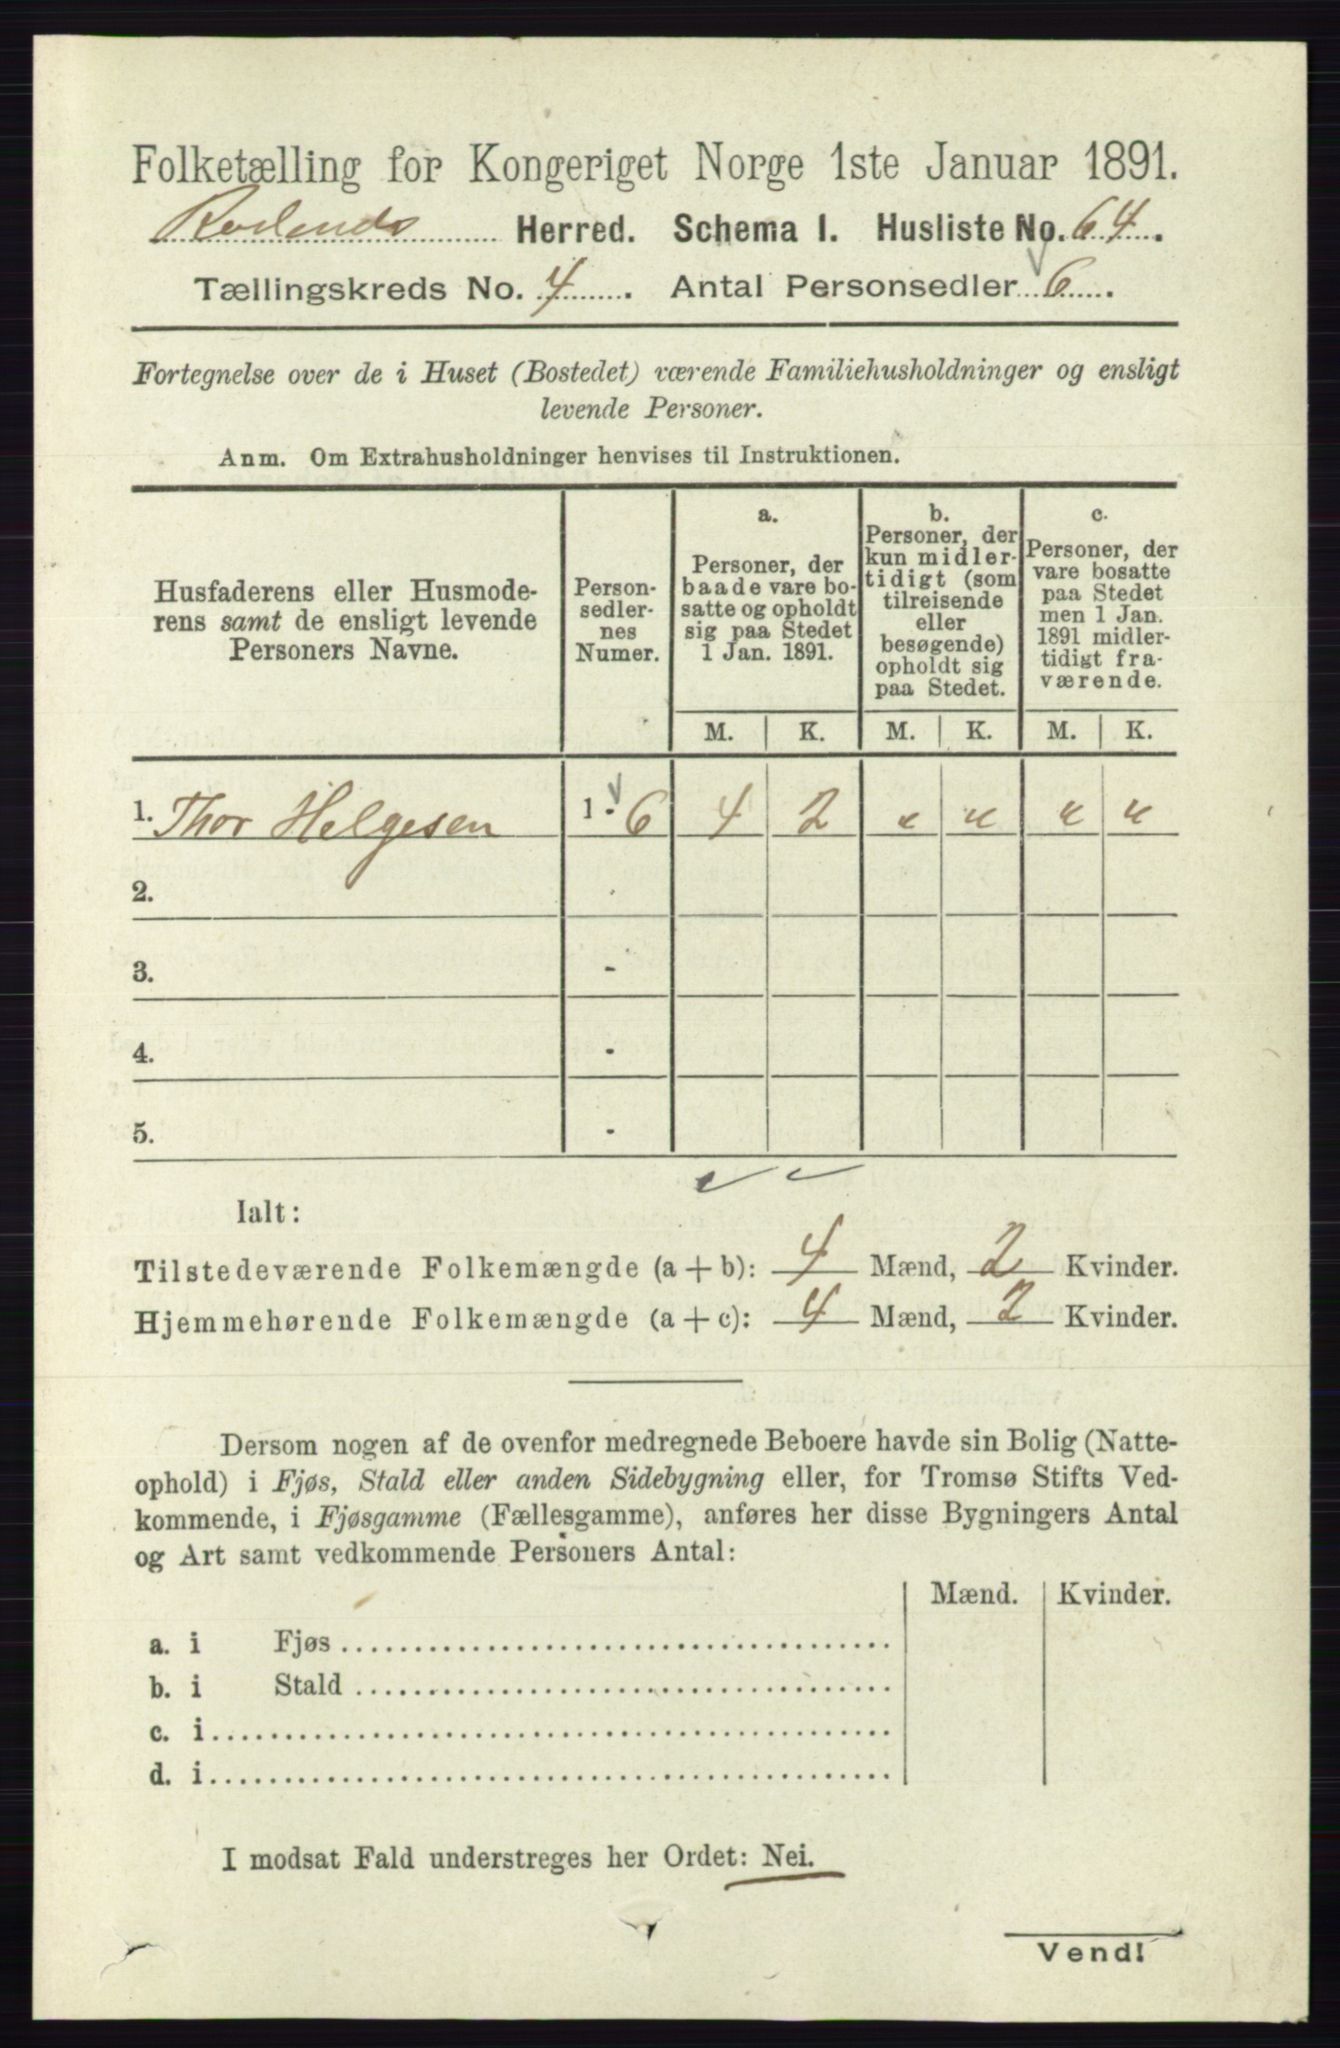 Folketælling for Kongeriget Norge 1ste Januar 1891.
Herred. Schema I. Husliste No. 64.
Tællingskreds No. 4. Antal Personsedler 6.
Fortegnelse over de i Huset (Bostedet) værende Familiehusholdninger og ensligt
levende Personer.
Anm. Om Extrahusholdninger henvises til Instruktionen.
Husfaderens eller Husmode-
rens samt de ensligt levende
Personers Navne.
Person-
sedler-
nes
Numer.
a.
Personer, der
baade vare bo-
satte og opholdt
sig paa Stedet
1 Jan. 1891.
b.
Personer, der
kun midler-
tidigt (som
tilreisende
eller
besøgende)
opholdt sig
paa Stedet.
c.
Personer, der
vare bosatte
paa Stedet
men 1 Jan.
1891 midler-
tidigt fra-
værende.
M. K. M. K. M. K.
1. Thor Helgesen 1 - 6 4 2 " " " "
2.
3. -
4. -
5. -
Ialt:
Tilstedeværende Folkemængde (a + b): 4 Mænd, 2 Kvinder.
Hjemmehørende Folkemængde (a + c): 4 Mænd, 2 Kvinder.
Dersom nogen af de ovenfor medregnede Beboere havde sin Bolig (Natte-
ophold) i Fjøs, Stald eller anden Sidebygning eller, for Tromsø Stifts Ved-
kommende, i Fjøsgamme (Fællesgamme), anføres her disse Bygningers Antal
og Art samt vedkommende Personers Antal:
Mænd. Kvinder.
a. i Fjøs
b. i Stald
c. i
d. i
I modsat Fald understreges her Ordet: Nei.
Vend!